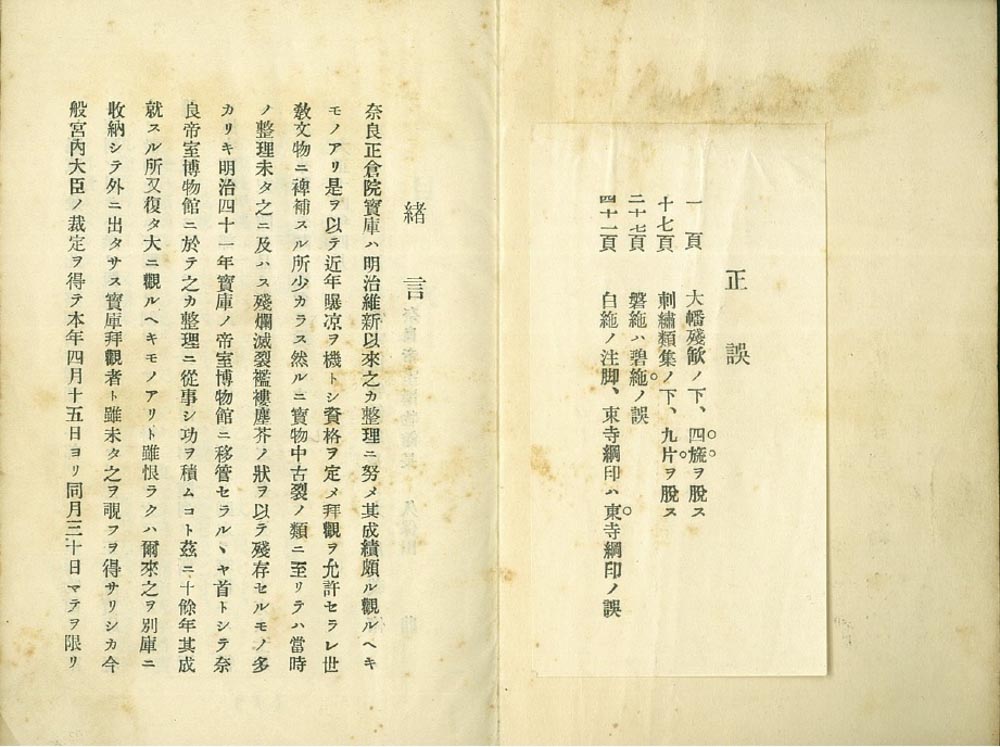 正誤
一頁 大幡殘欹ノ下、四旒ヲ脫ス
十七頁 刺繡類集ノ下、九片ヲ脫ス
二十七頁 磐絁ハ碧絁ノ誤
四十一頁 白絁ノ注脚、東寺綱印ハ東寺綱印ノ誤
緖言
奈良正倉院寶庫ハ明治維新以來之カ整理ニ努メ其成績頗ル觀ルヘキ
モノアリ是ヲ以テ近年曝凉ヲ機トシ資格ヲ定メ拜觀ヲ允許セラレ世
敎文物ニ裨補スル所少カラス然ルニ寶物中古裂ノ類ニ至リテハ當時
ノ整理未タ之ニ及ハス殘爛滅裂襤褸塵芥ノ狀ヲ以テ殘存セルモノ多
カリキ明治四十一年寶庫ノ帝室博物館ニ移管セラルヽヤ首トシテ奈
良帝室博物館ニ於テ之カ整理ニ從事シ功ヲ積ムコト茲ニ十餘年其成
就スル所又復タ大ニ觀ルヘキモノアリト雖恨ラクハ爾來之ヲ別庫ニ
收納シテ外ニ出タサス寶庫拜觀者ト雖未タ之ヲ覗フヲ得サリシカ今
般宮內大臣ノ裁定ヲ得テ本年四月十五日ヨリ同月三十日マテヲ限リ